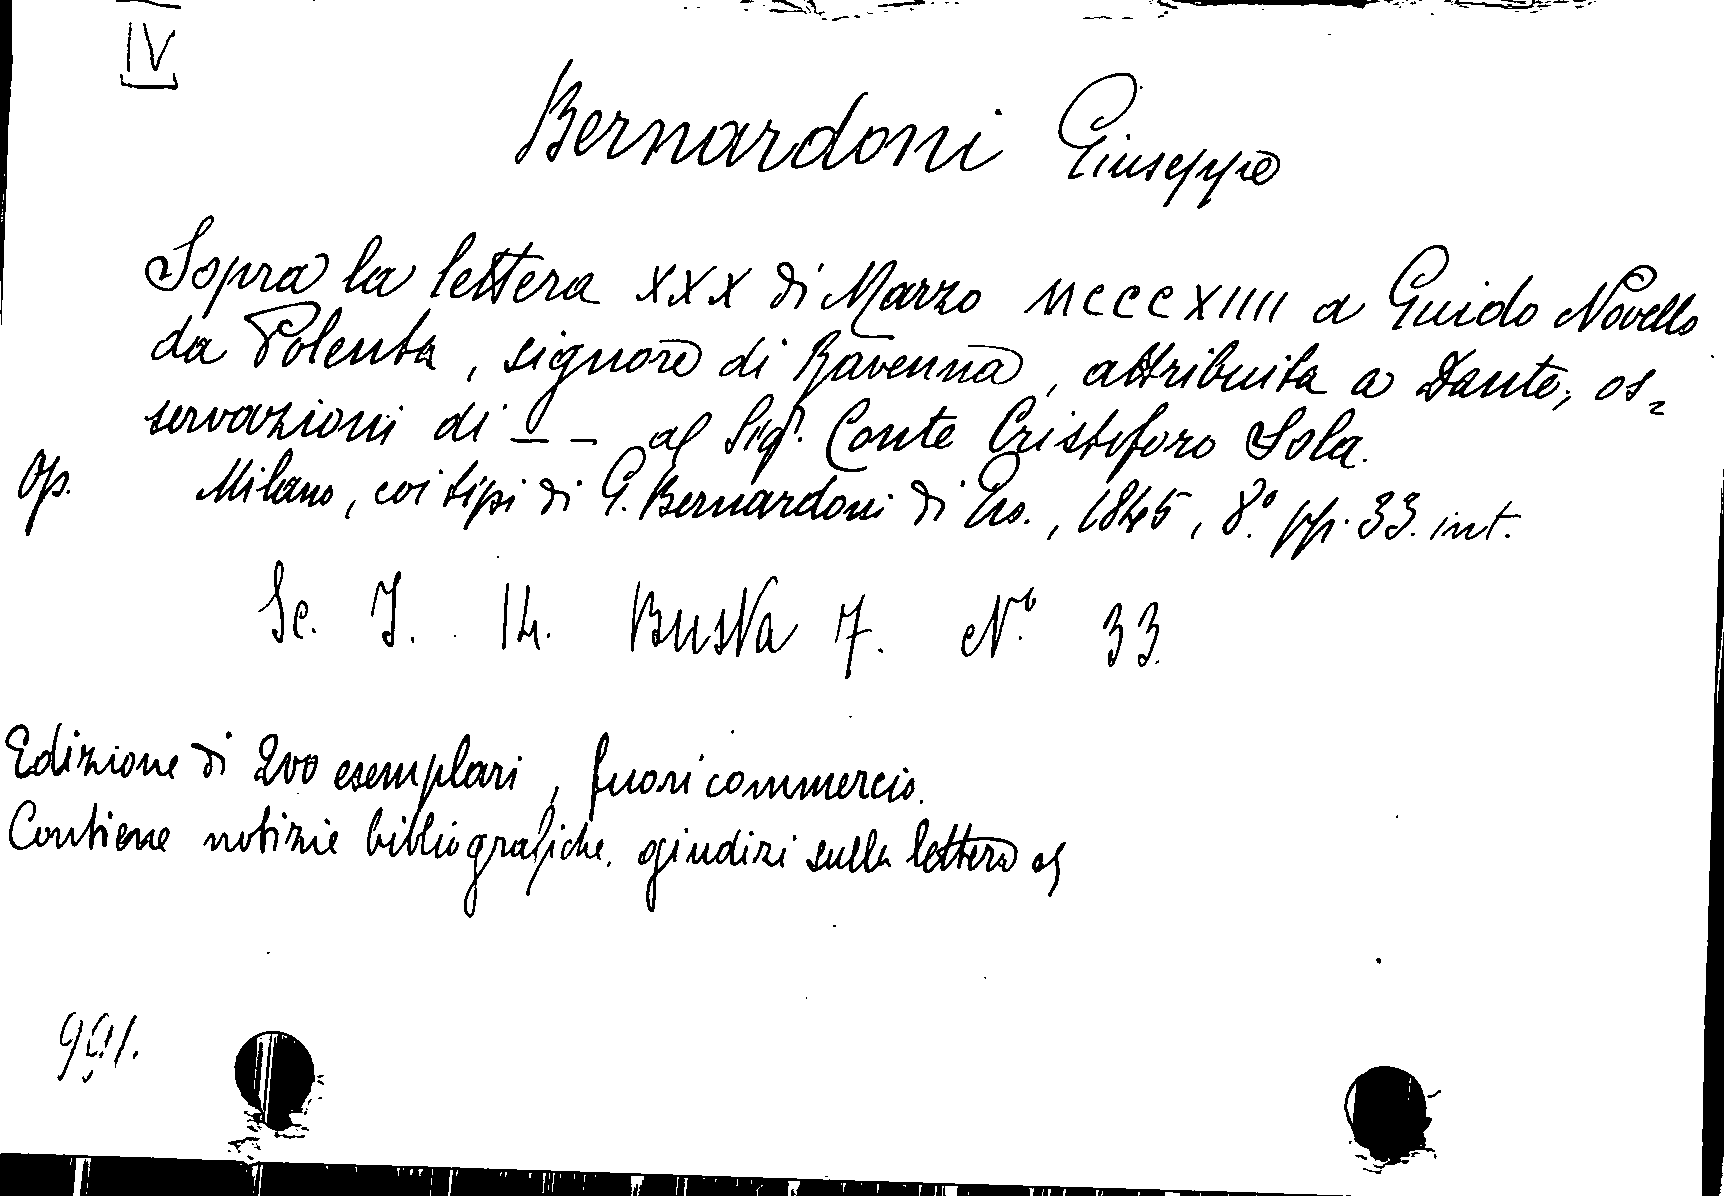 IV
Bernardoni Giuseppe
Sopra la lettera XXX di Marzo MCCCXIIII a Guido Novello
da Polenta, signore di Ravenna, attribuita a Dante; os=
servazioni di _ _ al Sigr. Conte Cristoforo Sola.
Op. Milano, coi tipi di G. Bernardoni di Gio., 1845, 8.º pp. 33. int.
Sc. I. 14. Busta 7. Nº 33.
Edizione di 200 esemplari, fuori commercio.
Contiene notizie bibliografiche. giudizi sulla lettera